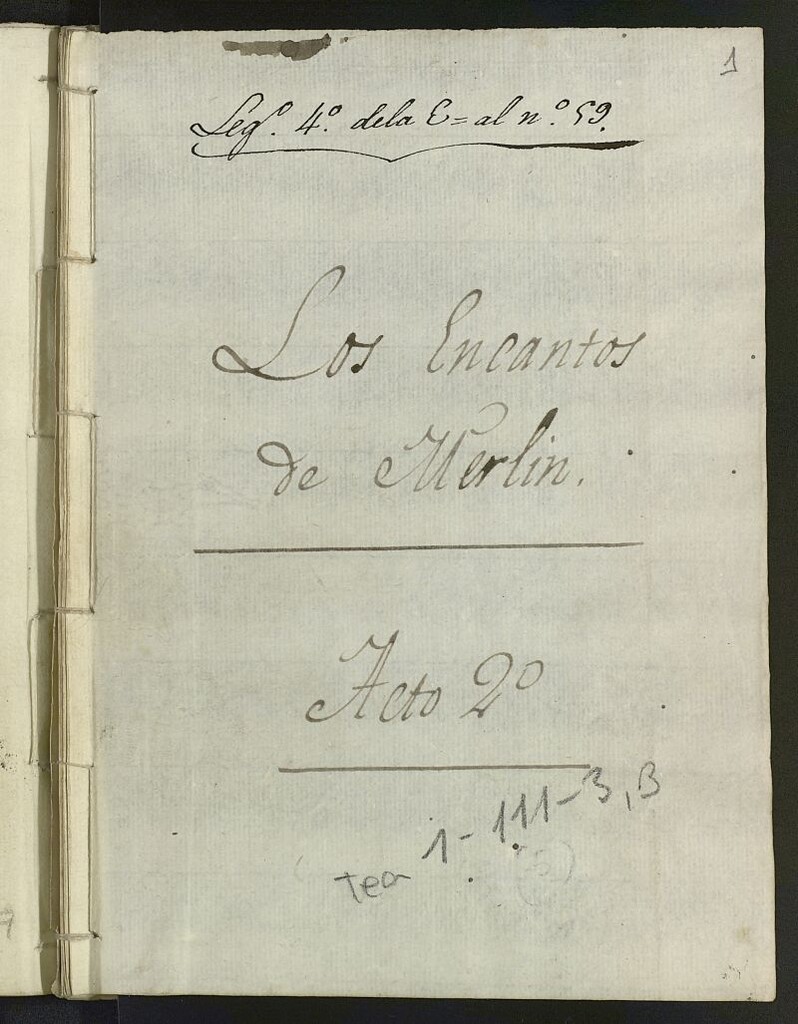 1
Legº. 4º. dela E= al nº. 59.
Los Encantos
de Merlin.
Acto 2º
tea 1-111-3, B